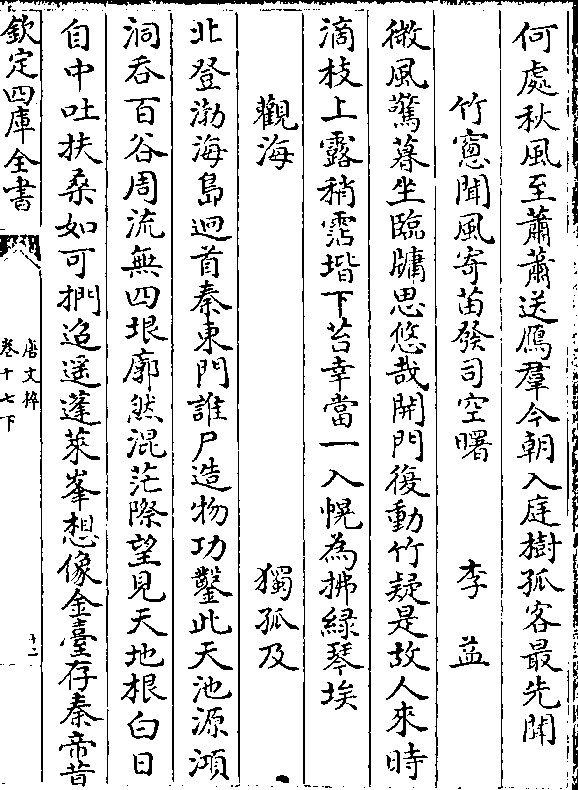 何處秋風至蕭蕭送鴈羣今朝入庭樹孤客最先聞
竹窻聞風寄苗發司空曙 李益
微風驚暮坐臨牗思悠哉開門復動竹疑是故人來時
滴枝上露稍霑堦下苔幸當一入幌為拂緑琴埃
觀海 獨孤及
北登渤海島迴首秦東門誰尸造物功鑿此天池源澒
洞吞百谷周流無四垠廓然混茫際望見天地根白日
自中吐扶桑如可捫迢遥蓬萊峯想像金臺存秦帝昔
欽定四庫全書
唐文粹
卷十七下
十二